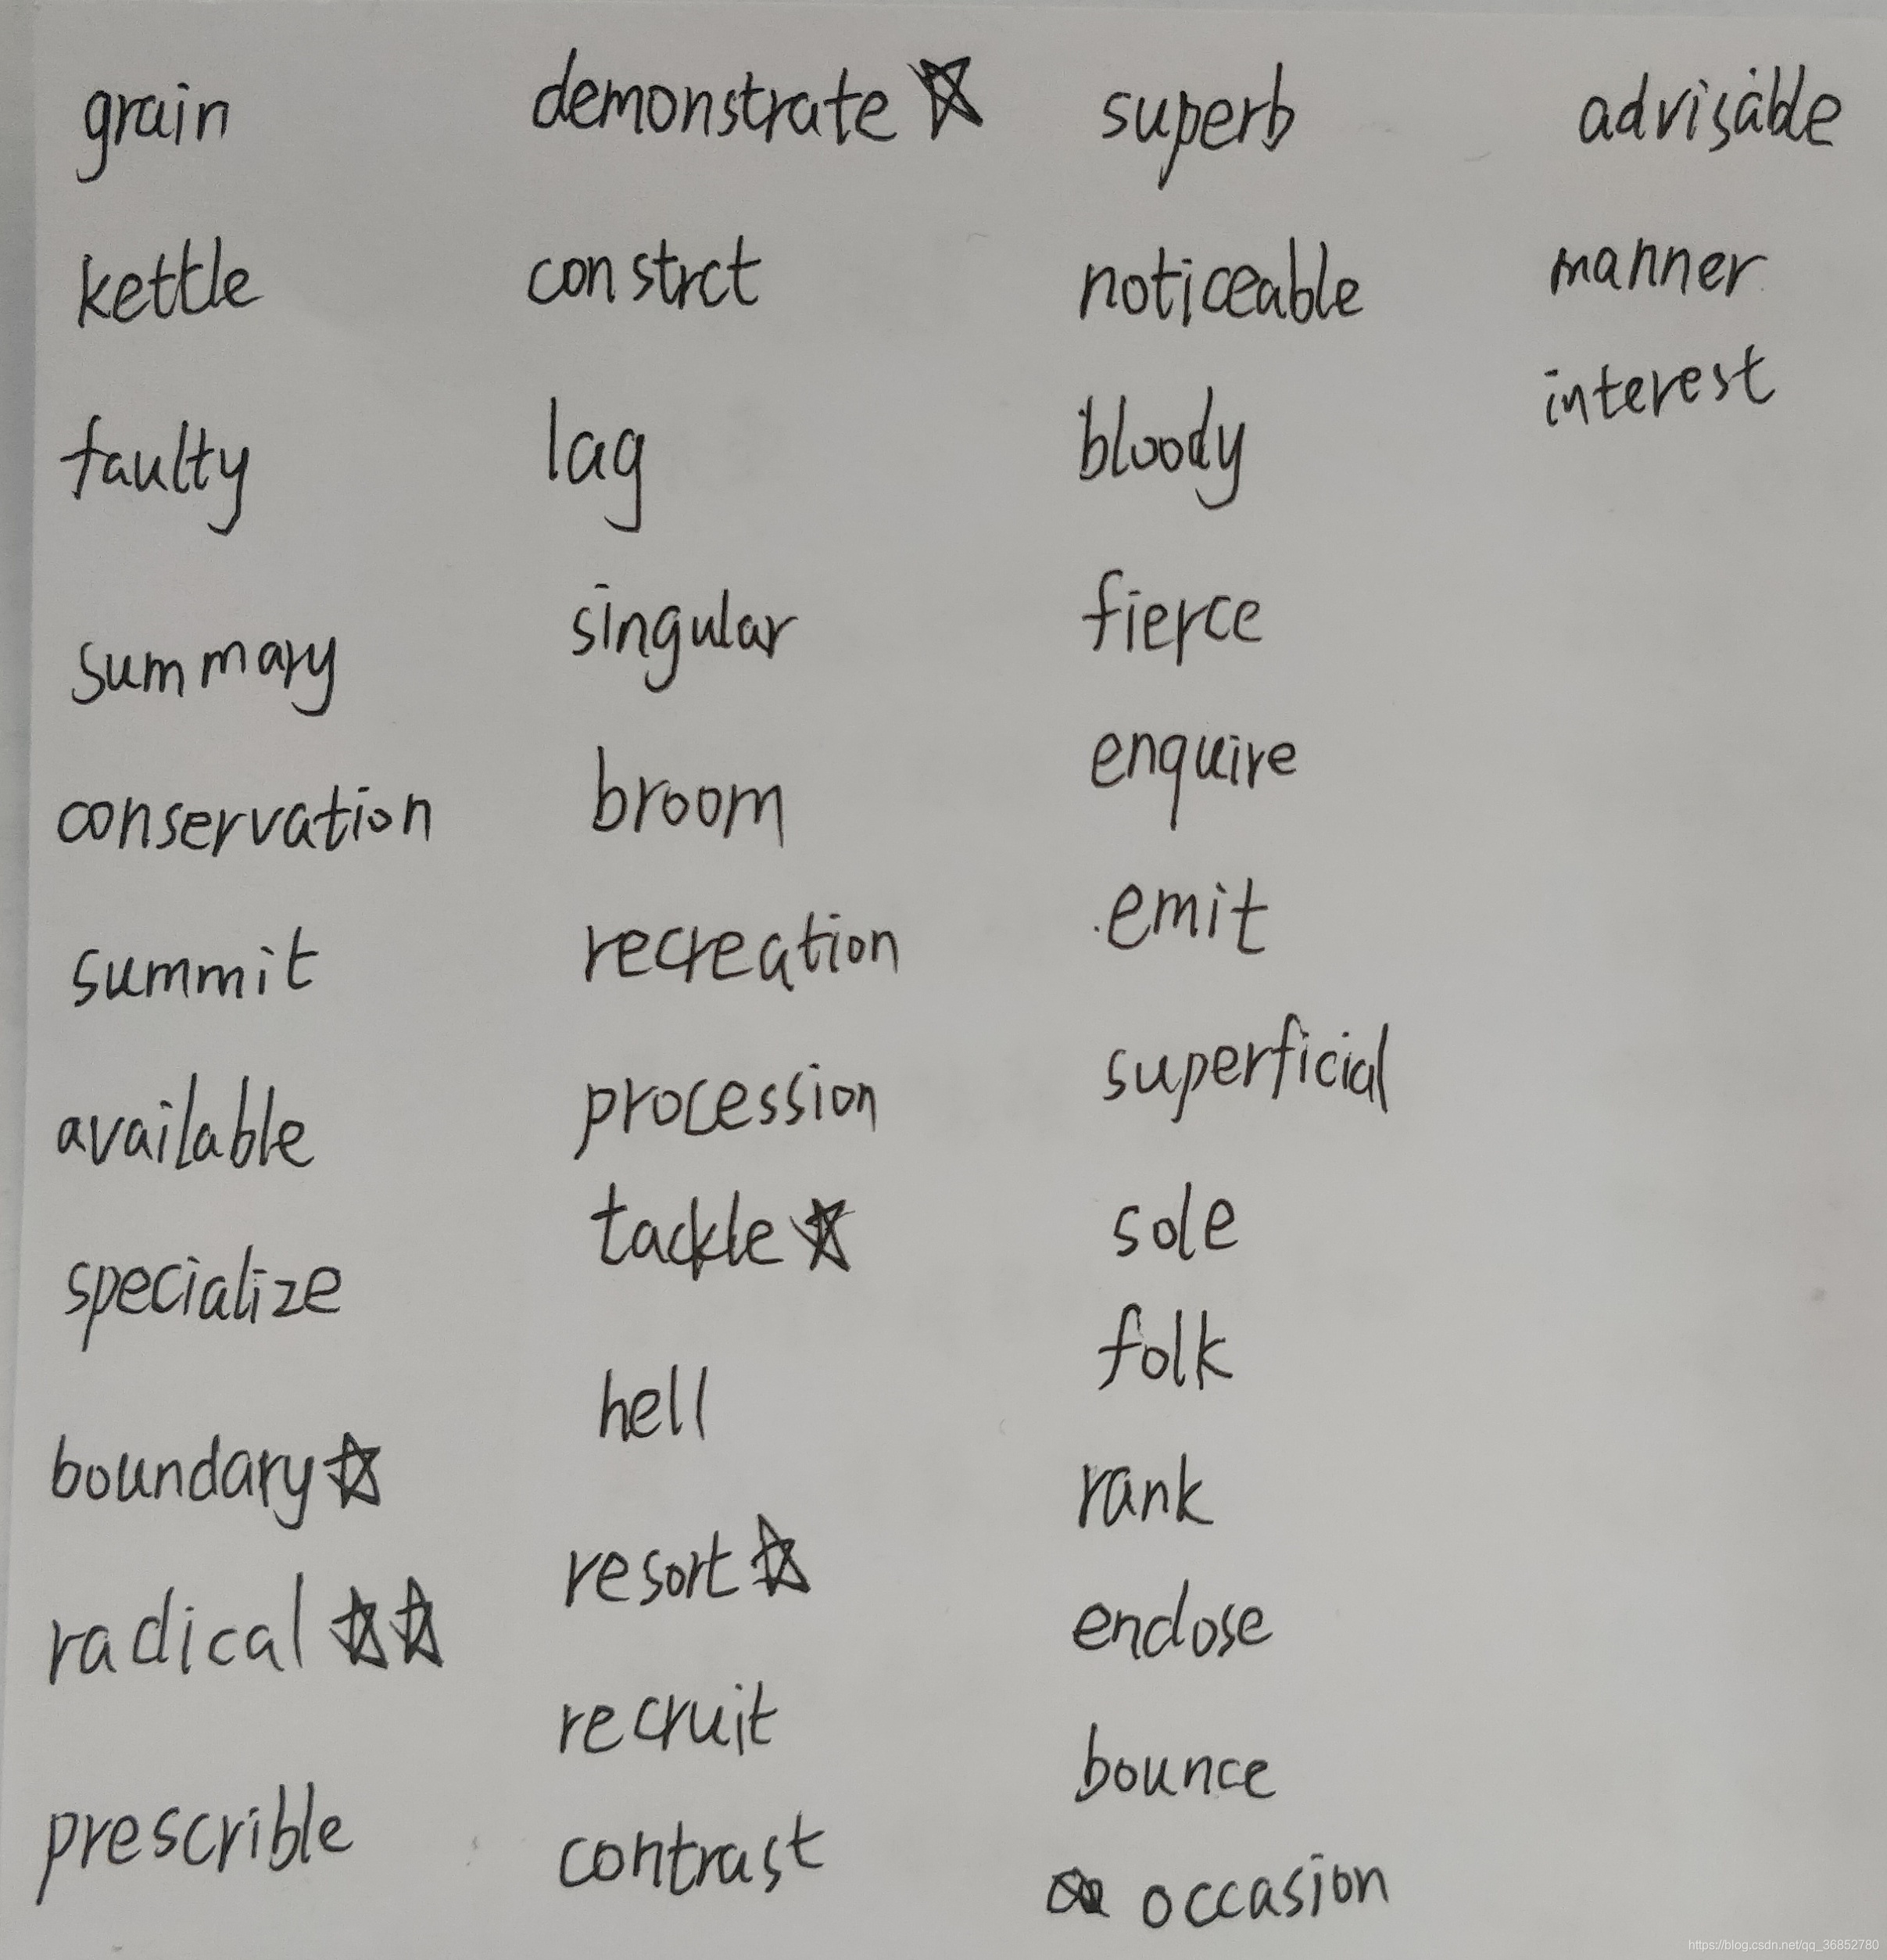 grain
kettle
faulty
summary
conservation
summit
available
specialize
boundary ☆
radical ☆☆
prescrible
demonstrate ☆
constrct
lag
singular
broom
recreation
procession
tackle ☆
hell
resort ☆
recruit
contrast
superb
noticeable
bloody
fierce
enquire
emit
superficial
sole
folk
rank
enclose
bounce
occasion
advisable
manner
interest
https://blog.csdn.net/qq_36852780